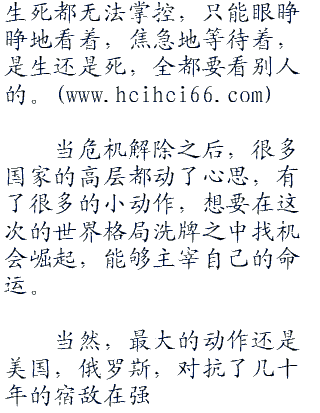 生死都无法掌控，只能眼睁
睁地看着，焦急地等待着，
是生还是死，全都要看别人
的。(www.hcihci66.com)
当危机解除之后，很多
国家的高层都动了心思，有
了很多的小动作，想要在这
次的世界格局洗牌之中找机
会崛起，能够主宰自己的命
运。
当然，最大的动作还是
美国，俄罗斯，对抗了几十
年的宿敌在强